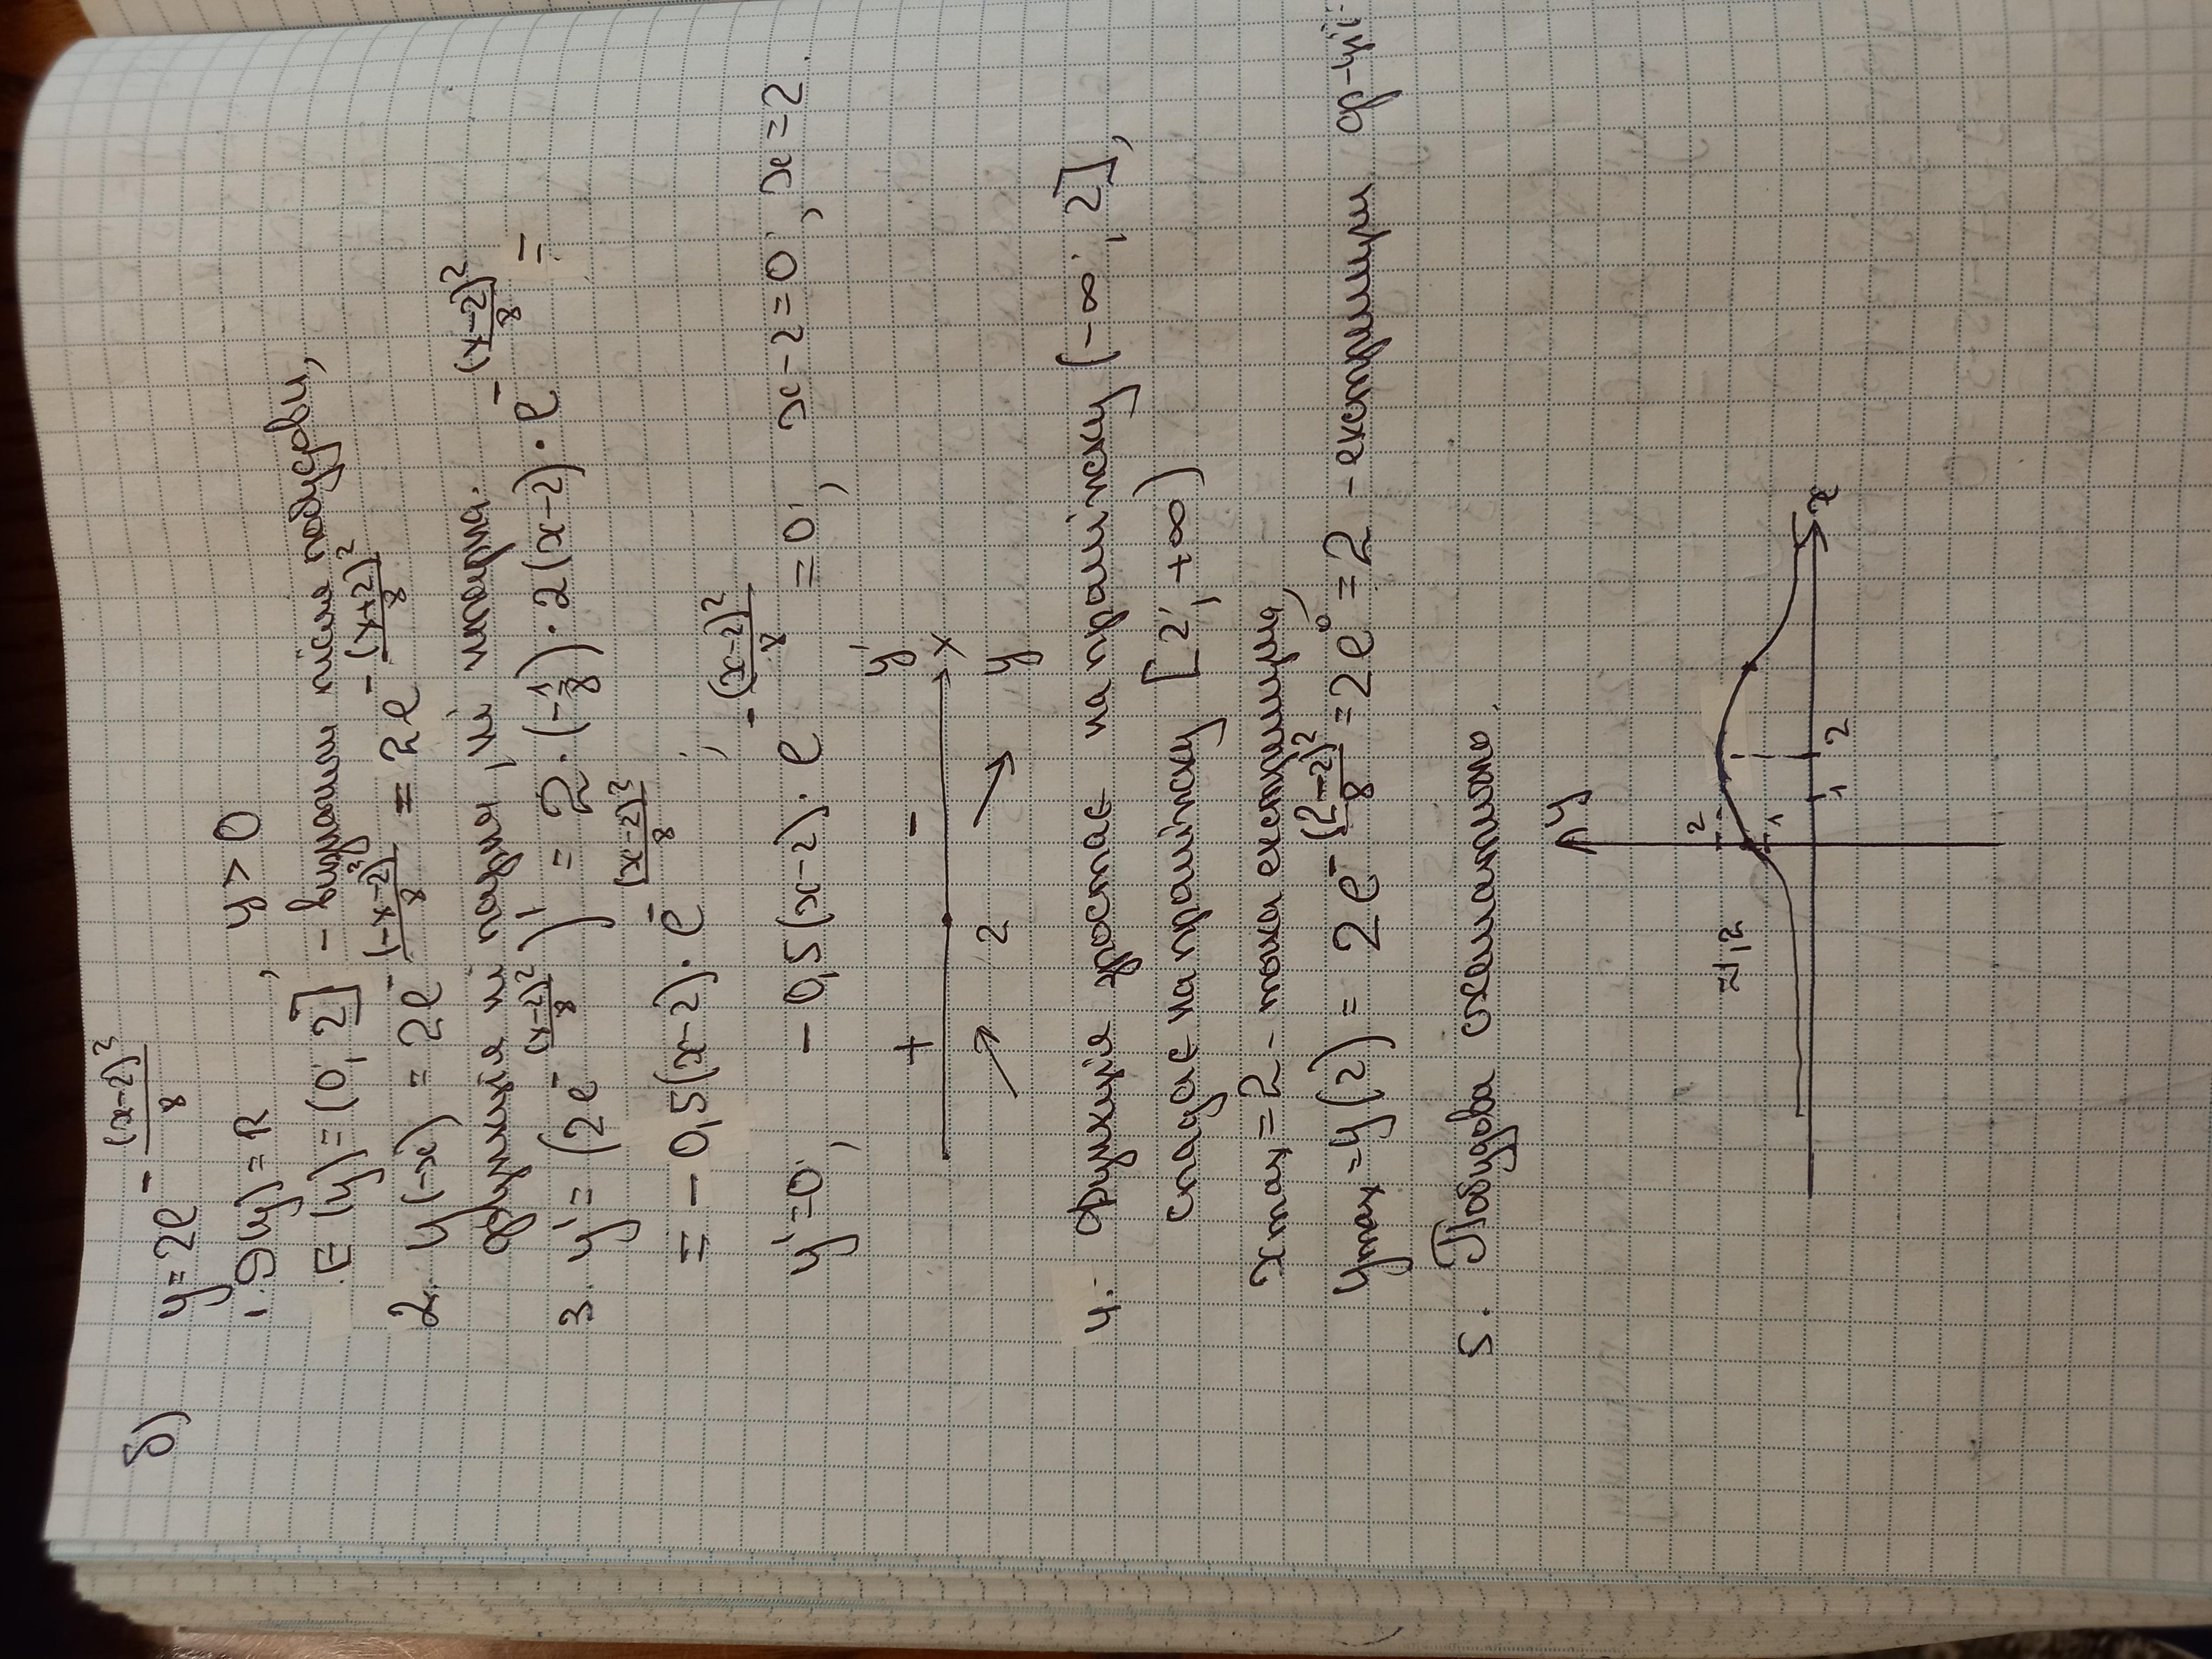 б) y = 2e^{-\frac{(x-2)^2}{8}}
1. D(y) = R, y > 0
E(y) = (0; 2] - вкажемо після побудови,
2. y(-x) = 2e^{-\frac{(-x-2)^2}{8}} = 2e^{-\frac{(x+2)^2}{8}}
Функція ні парна, ні непарна.
3. y' = (2e^{-\frac{(x-2)^2}{8}})' = 2·(-\frac{1}{8})·2(x-2)·e^{-\frac{(x-2)^2}{8}} =
= -0,5(x-2)·e^{-\frac{(x-2)^2}{8}};
y' = 0; -0,5(x-2)·e^{-\frac{(x-2)^2}{8}} = 0; x-2=0; x=2.
+ - y'
x
2 y
4. Функція зростає на проміжку (-∞; 2],
спадає на проміжку [2; +∞)
x max = 2 - точка екстремума,
y max = y(2) = 2e^{-\frac{(2-2)^2}{8}} = 2e^0 = 2 - екстремум ф-ції
5. Побудова схематично.
y
2
≈1,2
1
1 2 x